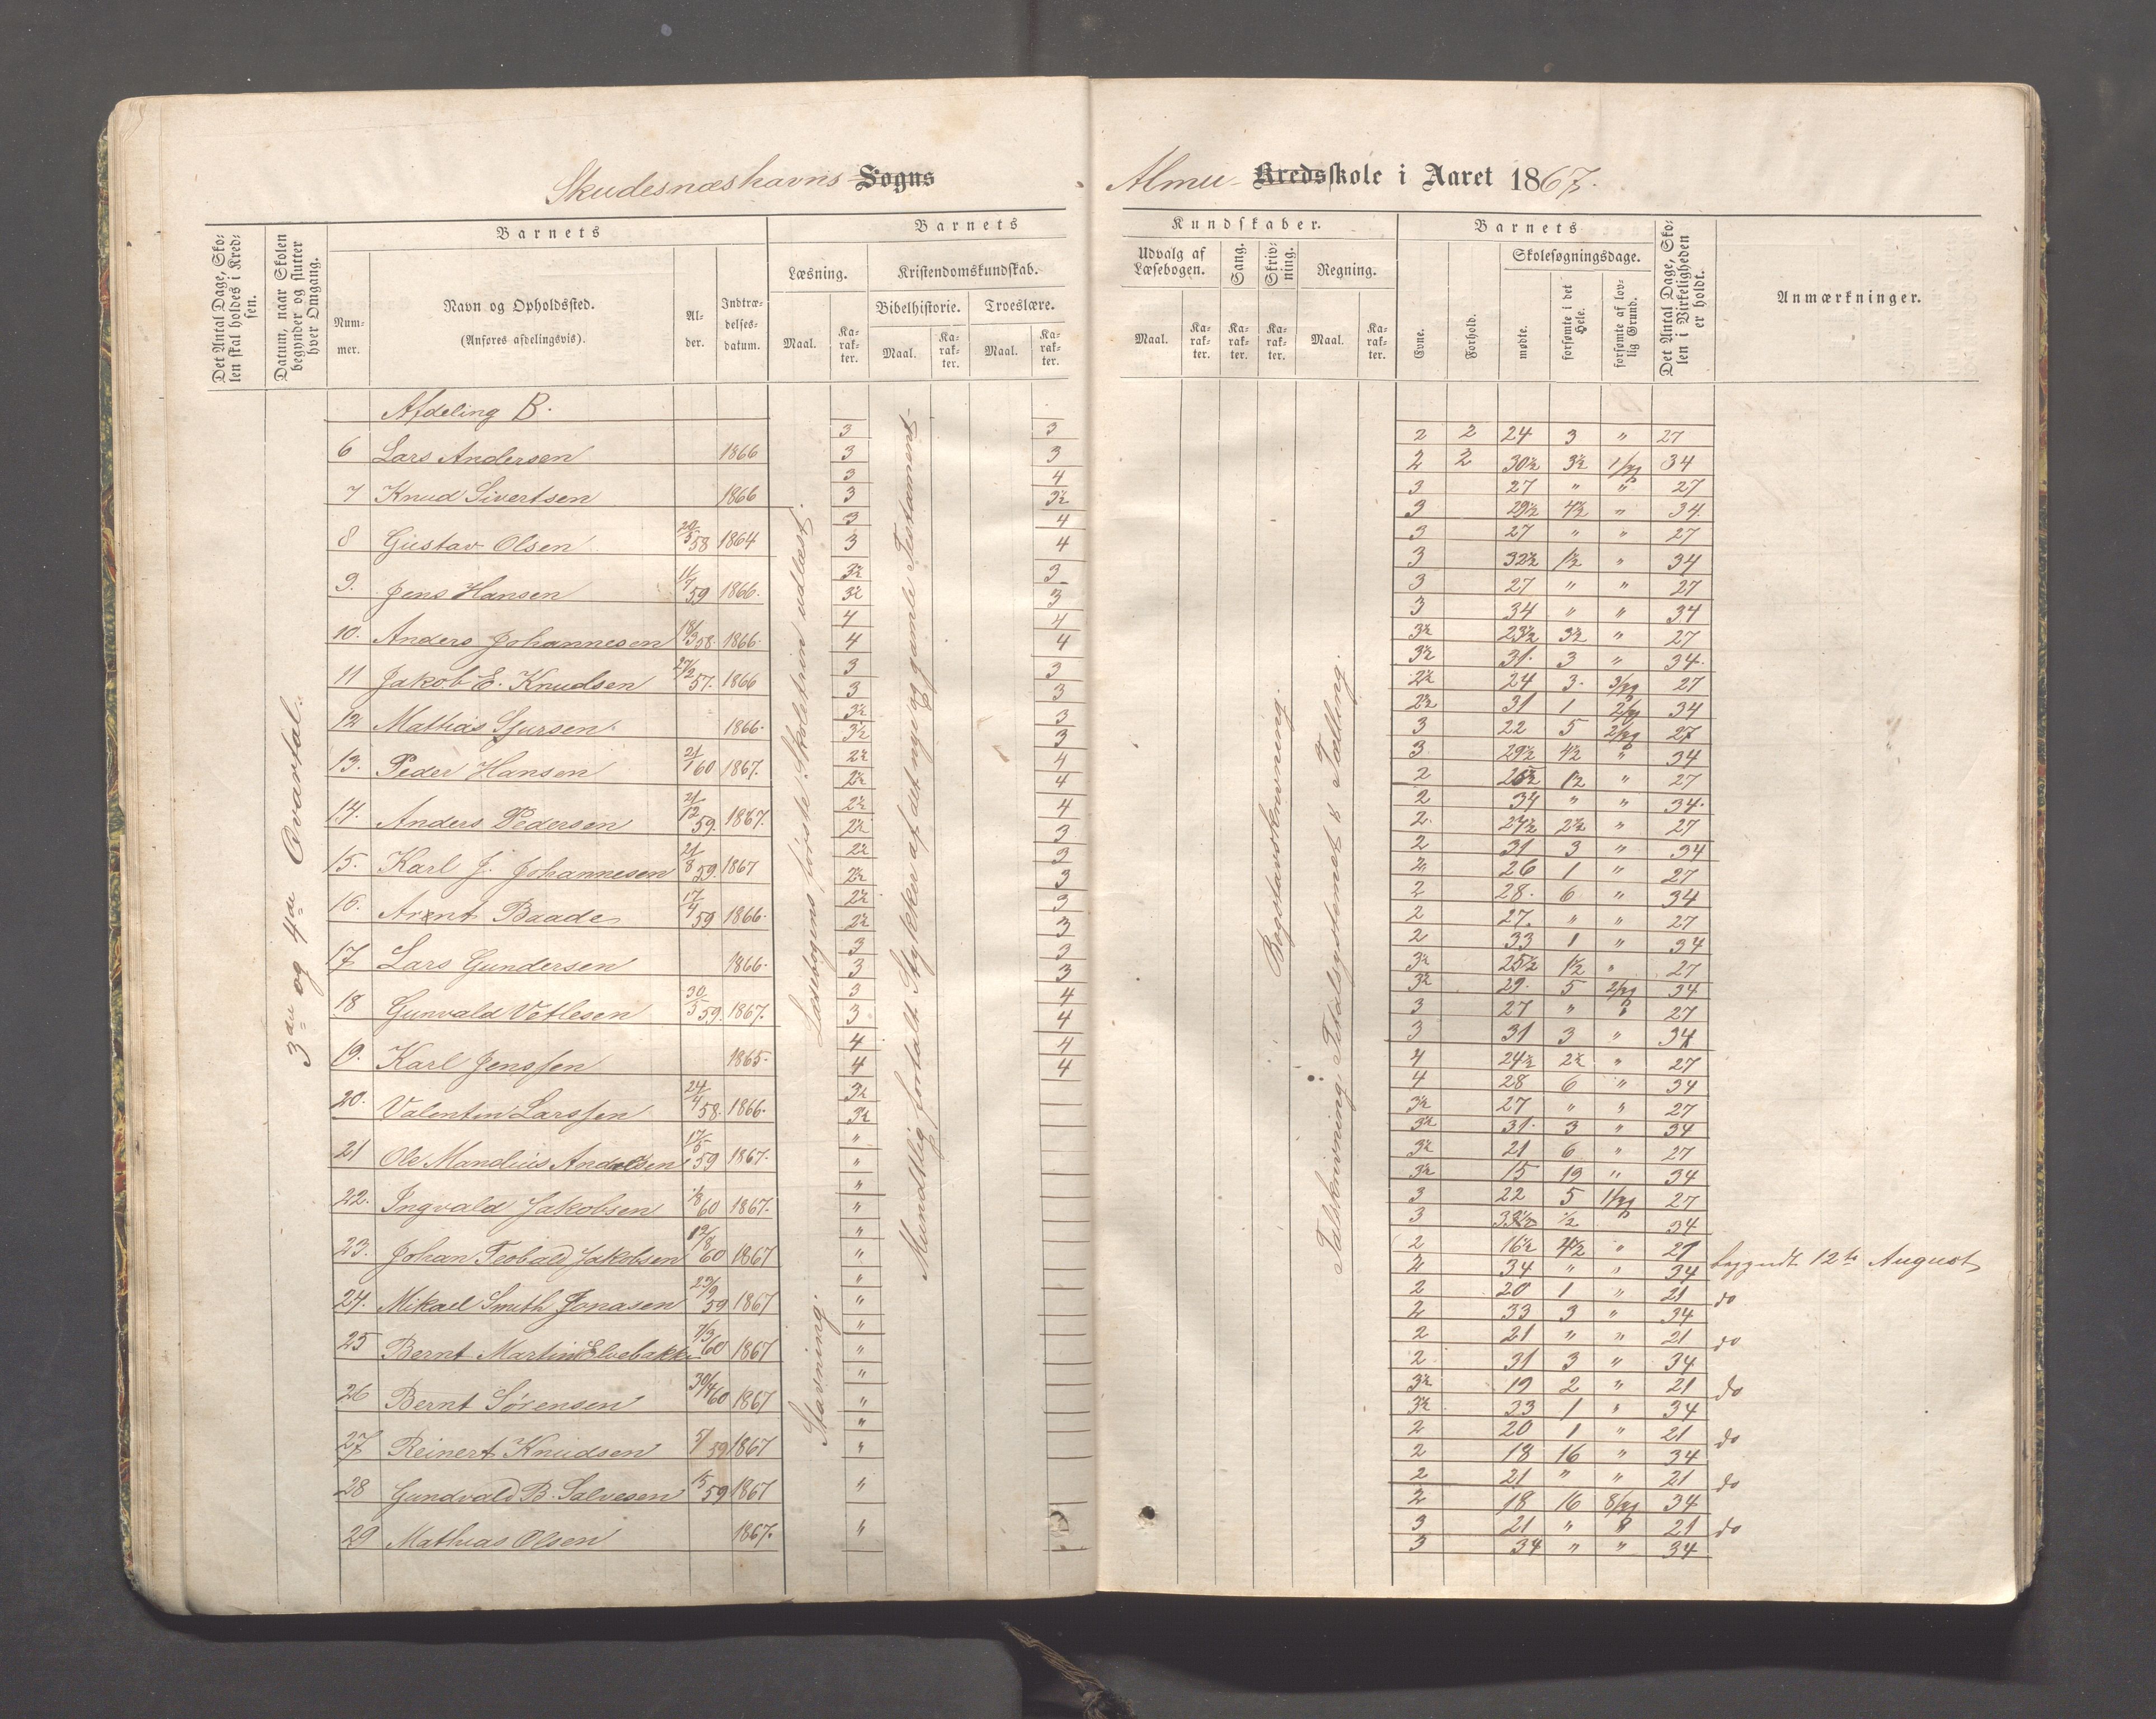 Skudesnæshavns Sogns
Almu- Kredsskole i Aaret 1867.
Det Antal Dage, Skolen skal holdes i Kredsen.
Datum, naar Skolen begynder og slutter hver Omgang.
Barnets
Nummer.
Navn og Opholdssted.
(Anføres afdelingsvis).
Alder.
Indtrædelsesdatum.
Barnets
Læsning.
Maal.
Karakter.
Kristendomskundskab.
Bibelhistorie.
Maal.
Karakter.
Troeslære.
Maal.
Karakter.
Kundskaber.
Udvalg af Læsebogen.
Maal.
Karakter.
Sang.
Karakter.
Skrivning.
Karakter.
Regning.
Maal.
Karakter.
Barnets
Evne.
Forhold.
Skolesøgningsdage.
mødte.
forsømte i det Hele.
forsømte af lovlig Grund.
Det Antal Dage, Skolen i Virkeligheden er holdt.
Anmærkninger.
3die og 4de Qvartal.
Læsebogens første Skoletrin udlæst.
Stavning.
Mundtlig fortalt Stykker af det nye og gamle Testament
Bogstavskrivning.
Talskrivning, Titalsystemet & Tælling.
Afdeling B.
6 Lars Andersen 1866 3 3 2 2 24 3 " 27
3 3 2 2 30½ 3½ 34
7 Knud Sivertsen 1866 3 4 3 27 " " 27
3 3½ 3 29½ 4½ " 34
8 Gustav Olsen 20/5 58 1864 3 4 3 27 " " 27
3 4 3 32½ 1½ " 34
9. Jens Hansen 11/7 59 1866. 3½ 3 3 27 " " 27
3½ 3 3 34 " " 34
10. Anders Johannesen 18/3 58. 1866. 4 4 3½ 23½ 3½ " 27
4 4 3½ 31. 3 " 34.
11 Jakob E. Knudsen 27/2 57. 1866 3 3 2½ 24 3. 27
3 3 2½ 31 1 34
12 Mathias Sjursen 1866. 3½ 3 3 22 5 27
3½ 3 3 29½ 4½ " 34
13. Peder Hansen 21/1 60 1867. 2½ 4 2 25½ 1½ " 27
2½ 4 2 34 " " 34.
14. Anders Pedersen 21/12 59. 1867. 2½ 4 2. 24½ 2½ " 27
2½ 3 2 31 3 " 34
15. Karl J. Johannesen 21/8 59. 1867 2½ 3 2 26 1 " 27
2½ 3 2 28. 6 " 34
16. Arent Baade 17/4 59 1866. 2½ 3 2 27. " " 27
2½ 3 2 33 1 " 34
17 Lars Gundersen 1866. 3 3 3½ 25½ 1½ " 27
3 3 3½ 29. 5 34
18 Gunvald Vetlesen 30/5 59. 1867. 3 4 3 27 " " 27
3 4 3 31 3 " 34
19. Karl Jenssen 1865. 4 4 4 24½ 2½ " 27
4 4 4 28 6 " 34
20. Valentin Larssen 24/4 58. 1866. 3½ 3½ 27 " " 27
3½ 3½ 31. 3 " 34
21 Ole Mandius Andersen 17/5 59 1867. " 3½ 21 6 " 27
" 3½ 15 19 " 34
22. Ingvald Jakobsen 1/8 60 1867. " 3 22 5 27
" 3 33½ ½ 34
23. Johan Teobald Jakobsen 19/8 60 1867 " 2 16½ 4½ " 21 begyndt 12te August
" 2 34 " " 34
24. Mikael Smith Jonasen 29/9 59 1867 " 2 20 1 " 21 do
" 2 33 3 " 34
25 Bernt Martin Elvebakke 7/3 60 1867 " 2 21 " " 21 do
" 2 31 3 " 34
26 Bernt Sørensen 30/4 60 1867 " 3½ 19 2 " 21 do
" 3½ 33 1 " 34
27 Reinert Knudsen 59 1867 " 2 20 1 " 21 do
" 2 18 16 " 34
28 Gundvald B. Salvesen 59 1867 " 2 21 " " 21 do
2 18 16 34
29 Mathias Olsen 1867. " 3 21 " " 21 do
3 34 " " 34